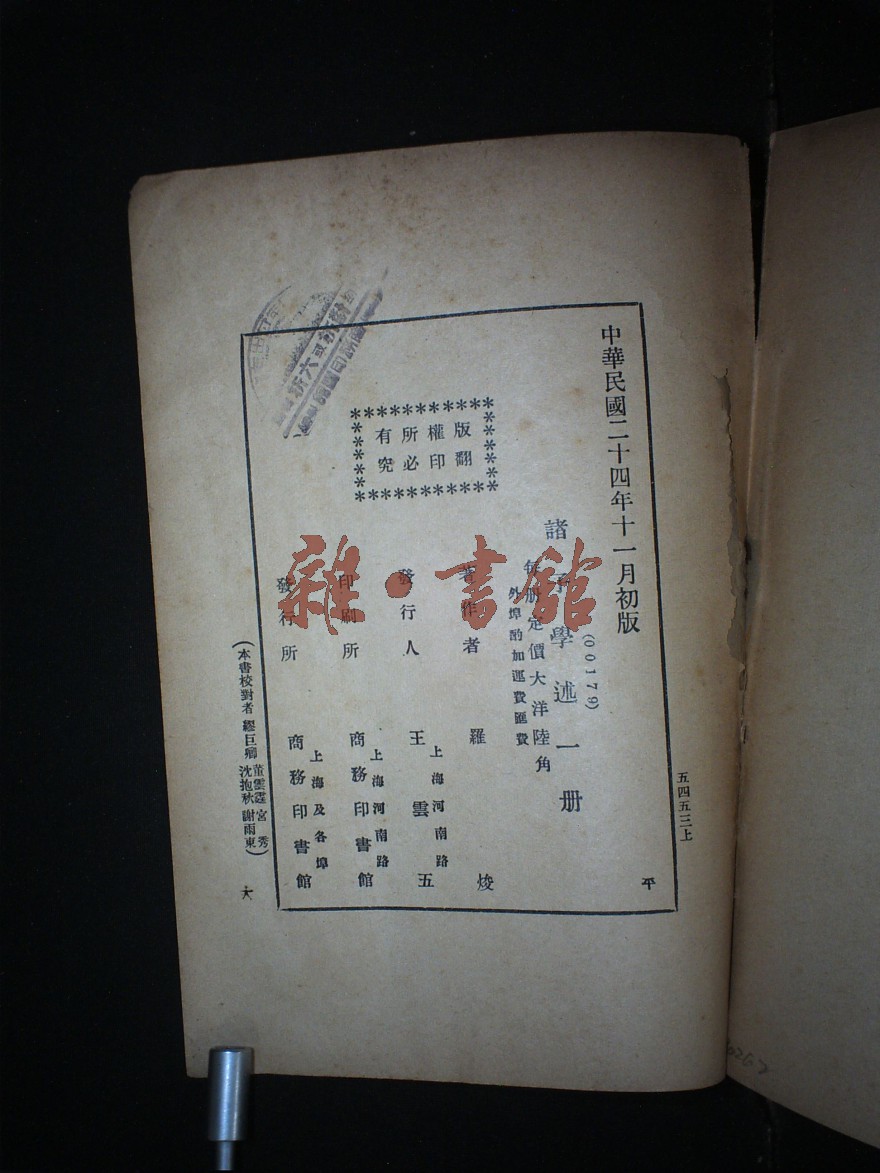 中華民國二十四年十一月初版
五四五三上
平
(00179)
諸子學述一册
每册定價大洋陸角
外埠酌加運費匯費
版權所有
翻印必究
著作者 羅焌
發行人 王雲五
上海河南路
印刷所 商務印書館
上海河南路
發行所 商務印書館
上海及各埠
(本書校對者 繆巨卿 董雲霆 沈抱秋 宮秀 謝雨東)
雜·書館